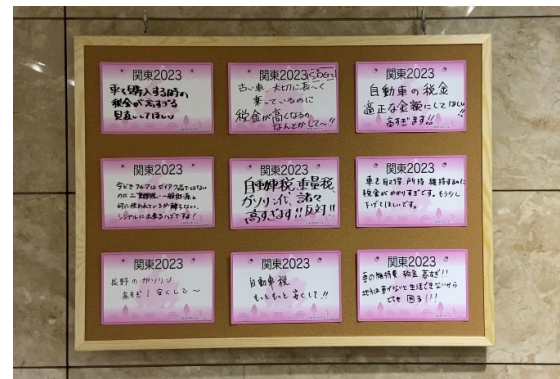 関東2023
車を購入する時の
税金が高すぎる
見直ししてほしい
関東2023
古い車、大切に長〜く
乗っているのに
税金が高くなるの
なんとかして〜!!
関東2023
自動車の税金
適正な金額にしてほしい!!
高すぎます!!
関東2023
今どきクルマはゼイタク品ではない
シンプルに出来るハズですよ!
関東2023
自動車税、重量税
ガソリン代、諸々
高すぎます!!反対!!
関東2023
車を取得、所持、維持するのに
税金がかかりすぎです。もう少し
下げてほしいです。
関東2023
長野のガソリン
高すぎ! 安くして〜
関東2023
自動車税
もっともっと安くして!!
関東2023
車の維持費 税金 高すぎ!!
車がないと生活できないから
とても困る!!!